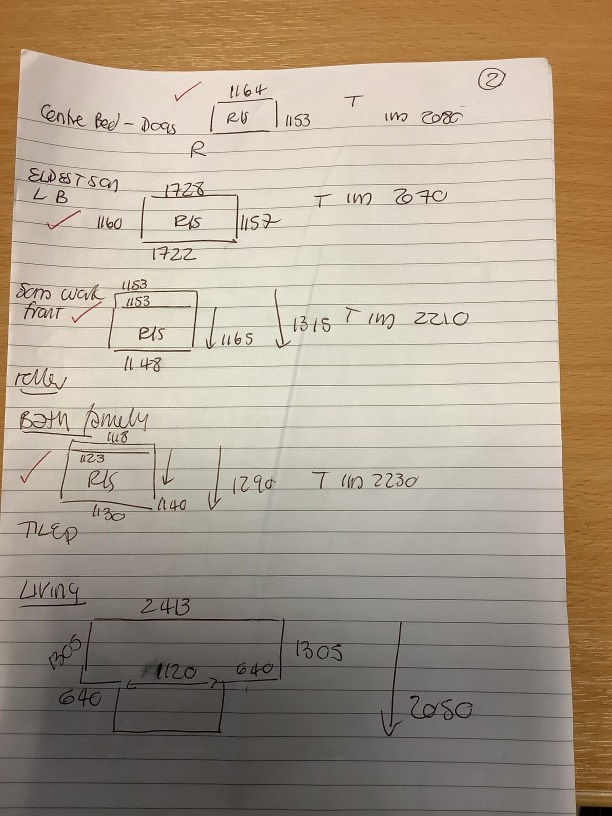 2
1164
Centre Bed - Dogs
R/S
1153
T
1m 2080
R
ELDEST SON
L B
1728
1160
R/S
1157
T 1m 2070
1722
Sons work
front
1153
1153
R/S
1165
1315
T 1m 2210
1148
roller
Bath family
1118
1123
R/S
1140
1290
T 1m 2230
1130
TILED
Living
2413
1305
1305
1120
640
640
2050